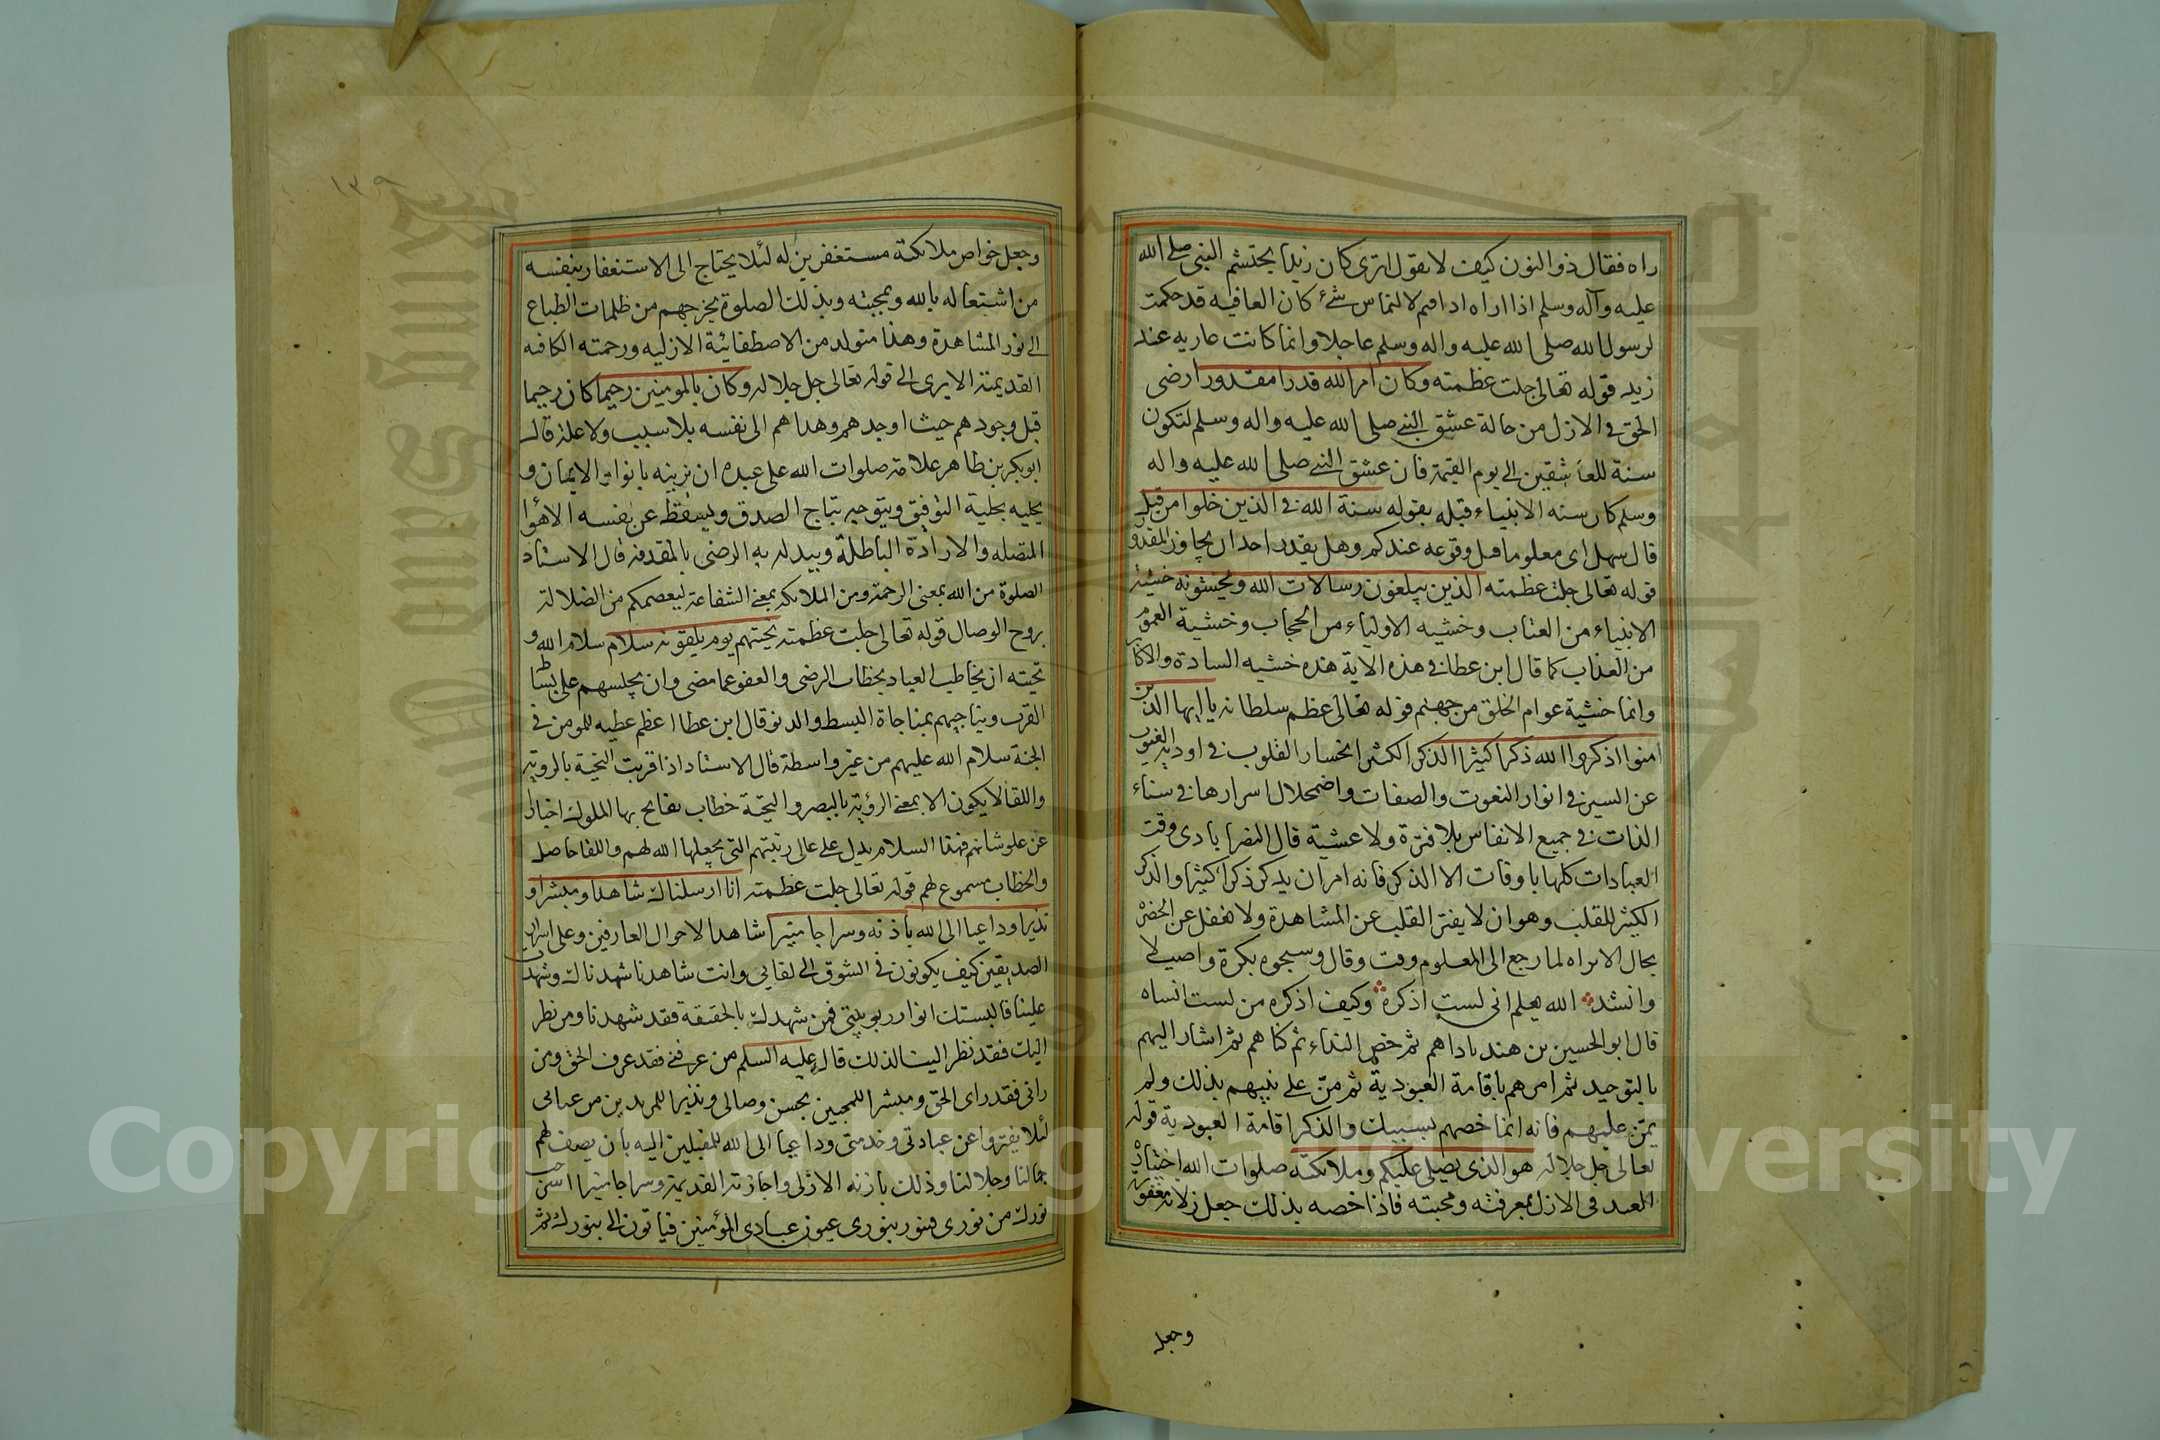 راه فقال ذو النون كيف لا يقول اترى كان زيدا يحتشم النبى صلى الله
عليه وآله وسلم اذا اراه اد اقم لالتماس شئ كان العافيه قد حكمت
لرسول الله صلى الله عليه واله وسلم عاجلا وانما كانت عاريه عند
زيد قوله تعالى جلت عظمته وكان امر الله قدرا مقدورا رضى
الحق فى الازل من حالة عشق النبى صلى الله عليه واله وسلم لتكون
سنة للعاشقين الى يوم القيمة فان عشق النبى صلى الله عليه واله
وسلم كان سنه الانبياء قبله بقوله سنة الله فى الذين خلوا من قبل
قال سهل اى معلوما قبل وقوعه عندكم وهل يقدر احد ان يجاوز المقدور
قوله تعالى جلت عظمته الذين يبلغون رسالات الله ويخشونه خشية
الانبياء من العتاب وخشيه الاولياء من الحجاب وخشية العموم
من العذاب كما قال ابن عطا فى هذه الاية هذه خشيه السادة والاكابر
وانما خشية عوام الخلق من جهنم قوله تعالى عظم سلطانه يا ايها الذين
امنوا اذكروا الله ذكرا كثيرا الذكر الكثير انخسار القلوب فى اودية الغيوب
عن السير فى انوار النعوت والصفات واضمحلال اسرارها فى سناء
الذات فى جميع الانفاس بلا فترة ولا عشية قال النصرابادى وقت
العبادات كلها باوقات الا الذكر فانه امر ان يذكر ذكرا كثيرا والذكر
الكثير للقلب وهو ان لا يفتر القلب عن المشاهدة ولا يغفل عن الحضرة
بحال الا تراه لما رجع الى المعلوم وقت وقال وسبحوه بكرة واصيلا
وانشد الله يعلم انى لست اذكره وكيف اذكره من لست انساه
قال ابو الحسين بن هند ناداهم ثم خص النداء ثم كناهم ثم اشار اليهم
بالتوحيد ثم امرهم باقامة العبودية ثم من على نبيهم بذلك ولم
يمن عليهم فانه انما خصهم بسببك والذكر اقامة العبودية قوله
تعالى جل جلاله هو الذى يصلى عليكم وملائكته صلوات الله اختيار
العبد فى الازل بمعرفته ومحبته فاذا خصه بذلك جعل زلاته مغفورة
وجعل
١٣٩
وجعل خواص ملائكته مستغفرين له لئلا يحتاج الى الاستغفار بنفسه
من اشتغاله بالله وبمحبته وبذلك الصلوة يخرجهم من ظلمات الطباع
الى نور المشاهدة وهذا متولد من الاصطفائية الازليه ورحمته الكافيه
القديمة الا يرى الى قوله تعالى جل جلاله وكان بالمومنين رحيما كان رحيما
قبل وجودهم حيث اوجدهم وهداهم الى نفسه بلا سبب ولا علة قال
ابوبكر بن طاهر علامة صلوات الله على عبده ان يزينه بانوار الايمان و
يحليه بحلية التوفيق ويتوجه بتاج الصدق ويسقط عن نفسه الاهواء
المتصله والارادة الباطلة ويبدله به الرضى بالمقدور قال الاستاد
الصلوة من الله بمعنى الرحمة ومن الملائكه بمعنى الشفاعة ليعصمكم من الضلالة
بروح الوصال قوله تعالى جلت عظمته تحيتهم يوم يلقونه سلام سلام الله و
تحيته ان يخاطب العباد بخطاب الرضى والعفو عما مضى وان يجلسهم على بساط
القرب ويناجيهم بمناجاة البسط والدنو قال ابن عطا اعظم عطيه للمومن فى
الجنة سلام الله عليهم من غير واسطة قال الاستاد اذا قربت التحية بالروية
واللقا لا يكون الا بمعنى الرؤية بالبصر والتحية خطاب يفاتح بها الملوك اخبارا
عن علو شانهم فهذا السلام يدل على عالى رتبتهم التى يجعلها الله لهم واللقا حاصل
والخطاب مسموع لهم قوله تعالى جلت عظمته انا ارسلناك شاهدا ومبشرا و
نذيرا وداعيا الى الله باذنه وسراجا منيرا شاهدا لاحوال العارفين وعلى اسرار
الصديقين كيف يكونون فى الشوق الى لقايى وانت شاهدنا شهدناك وشهدت
علينا فالبستك انوار ربوبيتى فمن شهدك بالحقيقة فقد شهدنا ومن نظر
اليك فقد نظر الينا لذلك قال عليه السلم من عرفنى فقد عرف الحق ومن
رانى فقد راى الحق ومبشرا للمحبين بحسن وصالى ونذيرا للمريدين من عتابى
لئلا يفتروا عن عبادتى وخدمتى وداعيا الى الله للمقبلين اليه بان يصف لهم
جمالنا وجلالنا وذلك باذنه الازلى واجازته القديمة وسراجا منيرا
نورك من نورى فينور بنورى عيون عبادى المؤمنين فياتون الى بنورك ثم
Copyright © King Saud University